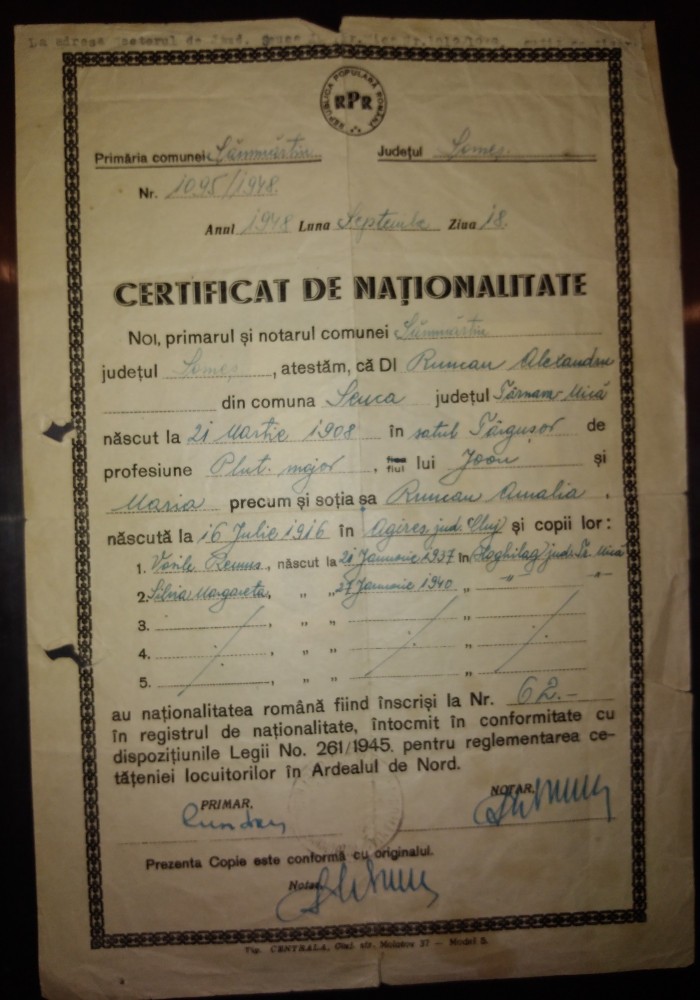 La adresa
REPUBLICA POPULARĂ ROMÂNĂ
RPR
Primăria comunei Sânmărtin Județul Someș
Nr. 1095/1948.
Anul 1948 Luna Septembe Ziua 18.
CERTIFICAT DE NAȚIONALITATE
NOI, primarul și notarul comunei Sânmărtin
județul Someș, atestăm, că Dl Runcan Alexandru
din comuna Seuca județul Târnava-Mică
născut la 21 Martie 1908 în satul Târgușor de
profesiune Plut. major, fica fiul lui Ioan și
Maria precum și soția sa Runcan Amalia,
născută la 16 Julie 1916 în Agireș jud. Cluj și copii lor:
1. Vasile Remus, născut la 21 Januarie 1937 în jud. Tâ. Mică
2. Silvia Margareta, " " 27 Januarie 1940 " " "
3. " " "
4. " " "
5. " " "
au naționalitatea română fiind înscriși la Nr. 62.-
în registrul de naționalitate, întocmit în conformitate cu
dispozițiunile Legii No. 261/1945, pentru reglementarea ce-
tățeniei locuitorilor în Ardealul de Nord.
PRIMAR, NOTAR,
Prezenta Copie este conformă cu originalul.
Notar
Tip. CENTRALA, Cluj. str. Molotov 37 — Model 5.